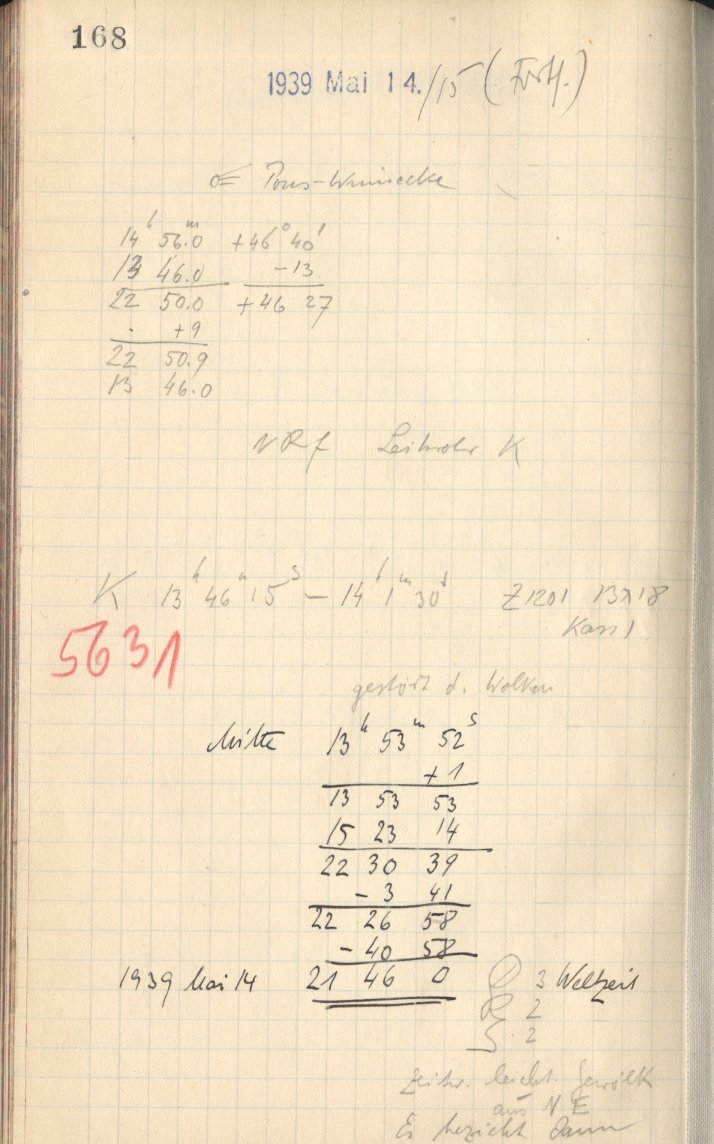 168
1939 Mai 14./15 (Forts.)
☄ Pons-Winnecke
14ʰ 56ᵐ.0 +46° 40'
13 46.0 -13
22 50.0 +46 27
. +9
22 50.9
13 46.0
NRf Leitrohr K
K 13ʰ 46ᵐ 15ˢ — 14ʰ 1ᵐ 30ˢ Z1201 13x18
Kass 1
5631
gestört d. Wolken
Mitte 13ʰ 53ᵐ 52ˢ
+1
13 53 53
15 23 14
22 30 39
-3 41
22 26 58
-40 58
1939 Mai 14 21 46 0 3 Weltzeit
R 2
S. 2
Zeitw. leicht. Gewölk
aus NE
Es bezieht dann